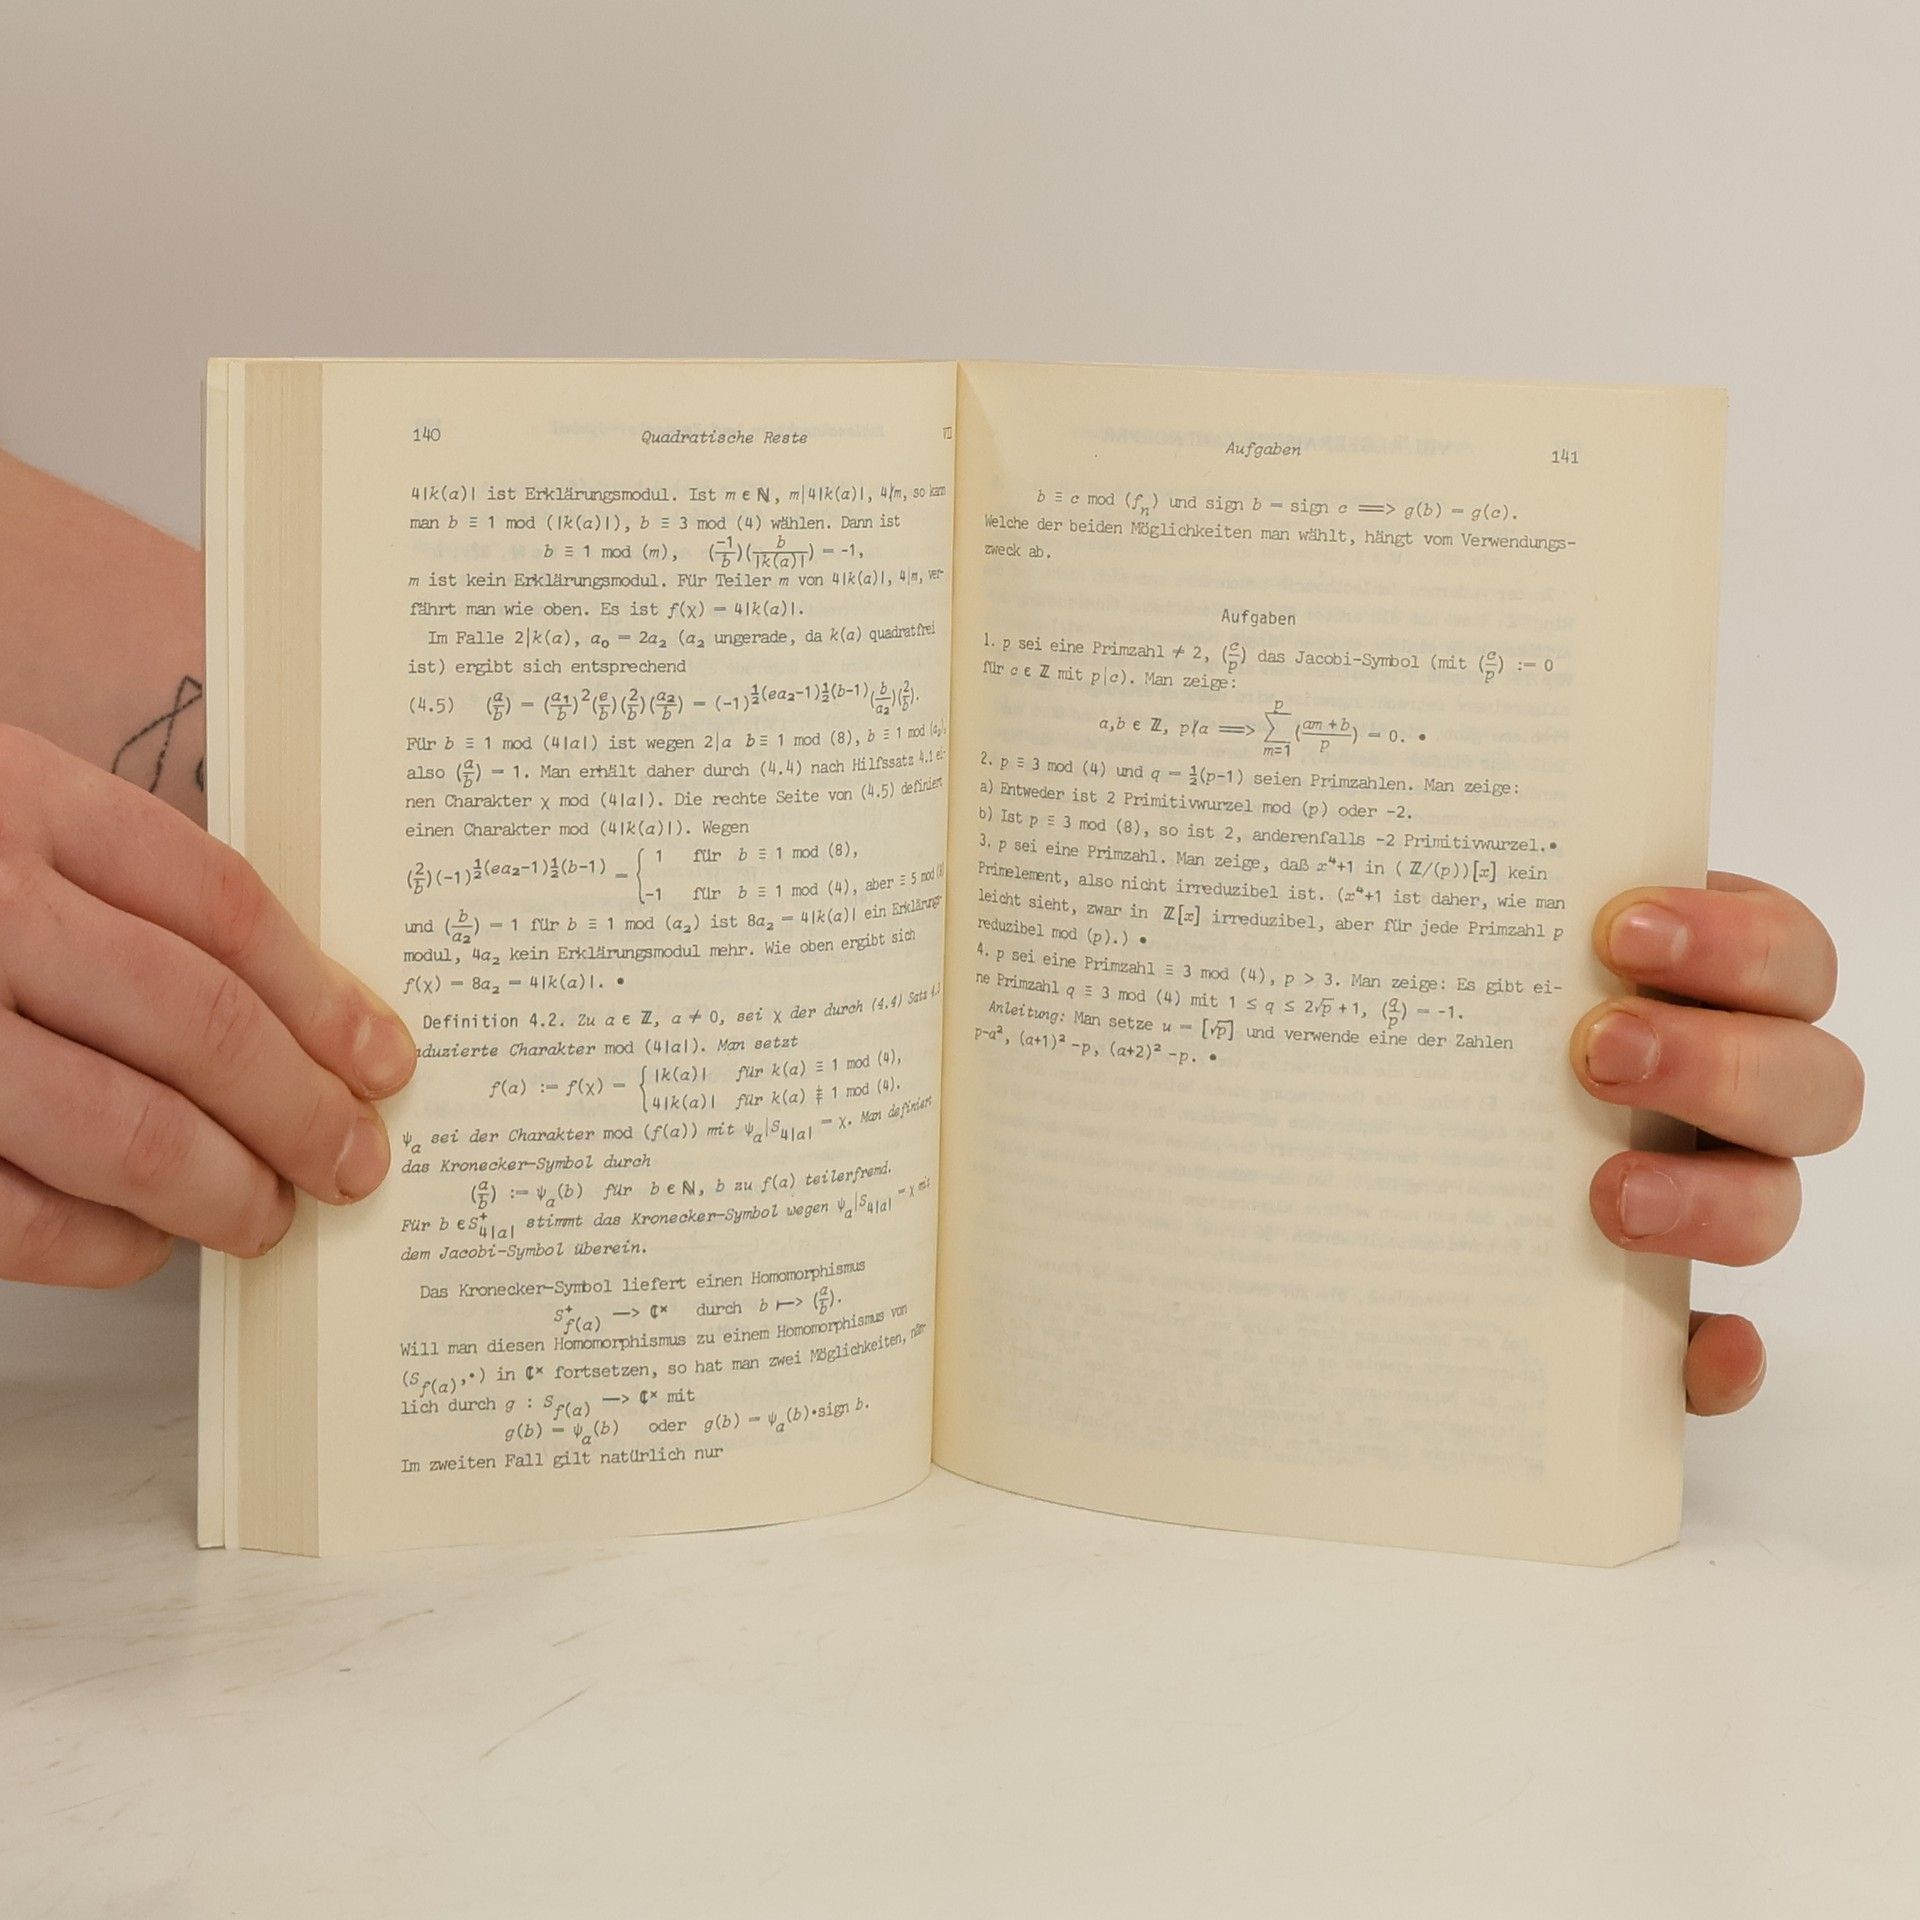 140 Quadratische Reste VII
4|k(a)| ist Erklärungsmodul. Ist m ∈ ℕ, m|4|k(a)|, 4∤m, so kann
man b ≡ 1 mod (|k(a)|), b ≡ 3 mod (4) wählen. Dann ist
b ≡ 1 mod (m), (-1/b)(b/|k(a)|) = -1,
m ist kein Erklärungsmodul. Für Teiler m von 4|k(a)|, 4|m, ver-
fährt man wie oben. Es ist f(χ) = 4|k(a)|.
Im Falle 2|k(a), a₀ = 2a₂ (a₂ ungerade, da k(a) quadratfrei
ist) ergibt sich entsprechend
(4.5) (a/b) = (a₁/b)²(e/b)(2/b)(a₂/b) = (-1)^½(ea₂-1)½(b-1)(b/a₂)(2/b).
Für b ≡ 1 mod (4|a|) ist wegen 2|a b ≡ 1 mod (8), b ≡ 1 mod (a₂),
also (a/b) = 1. Man erhält daher durch (4.4) nach Hilfssatz 4.1 ei-
nen Charakter χ mod (4|a|). Die rechte Seite von (4.5) definiert
einen Charakter mod (4|k(a)|). Wegen
(2/b)(-1)^½(ea₂-1)½(b-1) = { 1 für b ≡ 1 mod (8),
-1 für b ≡ 1 mod (4), aber ≡ 5 mod (8)
und (b/a₂) = 1 für b ≡ 1 mod (a₂) ist 8a₂ = 4|k(a)| ein Erklärungs-
modul, 4a₂ kein Erklärungsmodul mehr. Wie oben ergibt sich
f(χ) = 8a₂ = 4|k(a)|. •
Definition 4.2. Zu a ∈ ℤ, a ≠ 0, sei χ der durch (4.4) Satz
duzierte Charakter mod (4|a|). Man setzt
f(a) := f(χ) = { |k(a)| für k(a) ≡ 1 mod (4),
4|k(a)| für k(a) ≢ 1 mod (4).
ψₐ sei der Charakter mod (f(a)) mit ψₐ|S₄|ₐ| = χ. Man definiert
das Kronecker-Symbol durch
(a/b) := ψₐ(b) für b ∈ ℕ, b zu f(a) teilerfremd.
Für b ∈ S⁺₄|ₐ| stimmt das Kronecker-Symbol wegen ψₐ|S₄|ₐ| = χ mit
dem Jacobi-Symbol überein.
Das Kronecker-Symbol liefert einen Homomorphismus
S⁺f(a) —> ℂˣ durch b ↦ (a/b).
Will man diesen Homomorphismus zu einem Homomorphismus von
(Sf(a),•) in ℂˣ fortsetzen, so hat man zwei Möglichkeiten, näm-
lich durch g : Sf(a) —> ℂˣ mit
g(b) = ψₐ(b) oder g(b) = ψₐ(b)•sign b.
Im zweiten Fall gilt natürlich nur
Aufgaben 141
b ≡ c mod (fₙ) und sign b = sign c ==> g(b) = g(c).
Welche der beiden Möglichkeiten man wählt, hängt vom Verwendungs-
zweck ab.
Aufgaben
1. p sei eine Primzahl ≠ 2, (c/p) das Jacobi-Symbol (mit (c/p) := 0
für c ∈ ℤ mit p|c). Man zeige:
a,b ∈ ℤ, p∤a ==> ∑ₘ₌₁ᵖ ((am+b)/p) = 0. •
2. p ≡ 3 mod (4) und q = ½(p-1) seien Primzahlen. Man zeige:
a) Entweder ist 2 Primitivwurzel mod (p) oder -2.
b) Ist p ≡ 3 mod (8), so ist 2, anderenfalls -2 Primitivwurzel.•
3. p sei eine Primzahl. Man zeige, daß x⁴+1 in (ℤ/(p))[x] kein
Primelement, also nicht irreduzibel ist. (x⁴+1 ist daher, wie man
leicht sieht, zwar in ℤ[x] irreduzibel, aber für jede Primzahl p
reduzibel mod (p).) •
4. p sei eine Primzahl ≡ 3 mod (4), p > 3. Man zeige: Es gibt ei-
ne Primzahl q ≡ 3 mod (4) mit 1 ≤ q ≤ 2√p + 1, (q/p) = -1.
Anleitung: Man setze u = [√p] und verwende eine der Zahlen
p-a², (a+1)²-p, (a+2)²-p. •